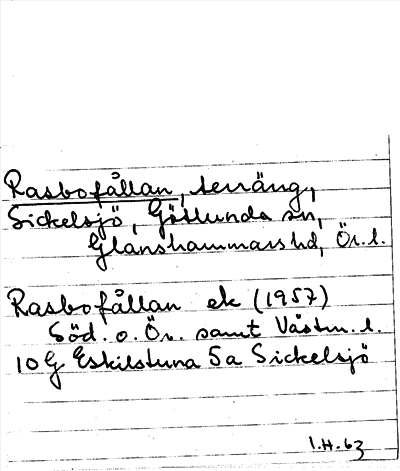 Rasbofållan, terräng,
Sickelsjö, Götlunda sn,
Glanshammars hd, Ör. l.
Rasbofållan ek (1957)
Söd. o. Ör. samt Västm. l.
10 G Eskilstuna 5 a Sickelsjö
I.H. 63